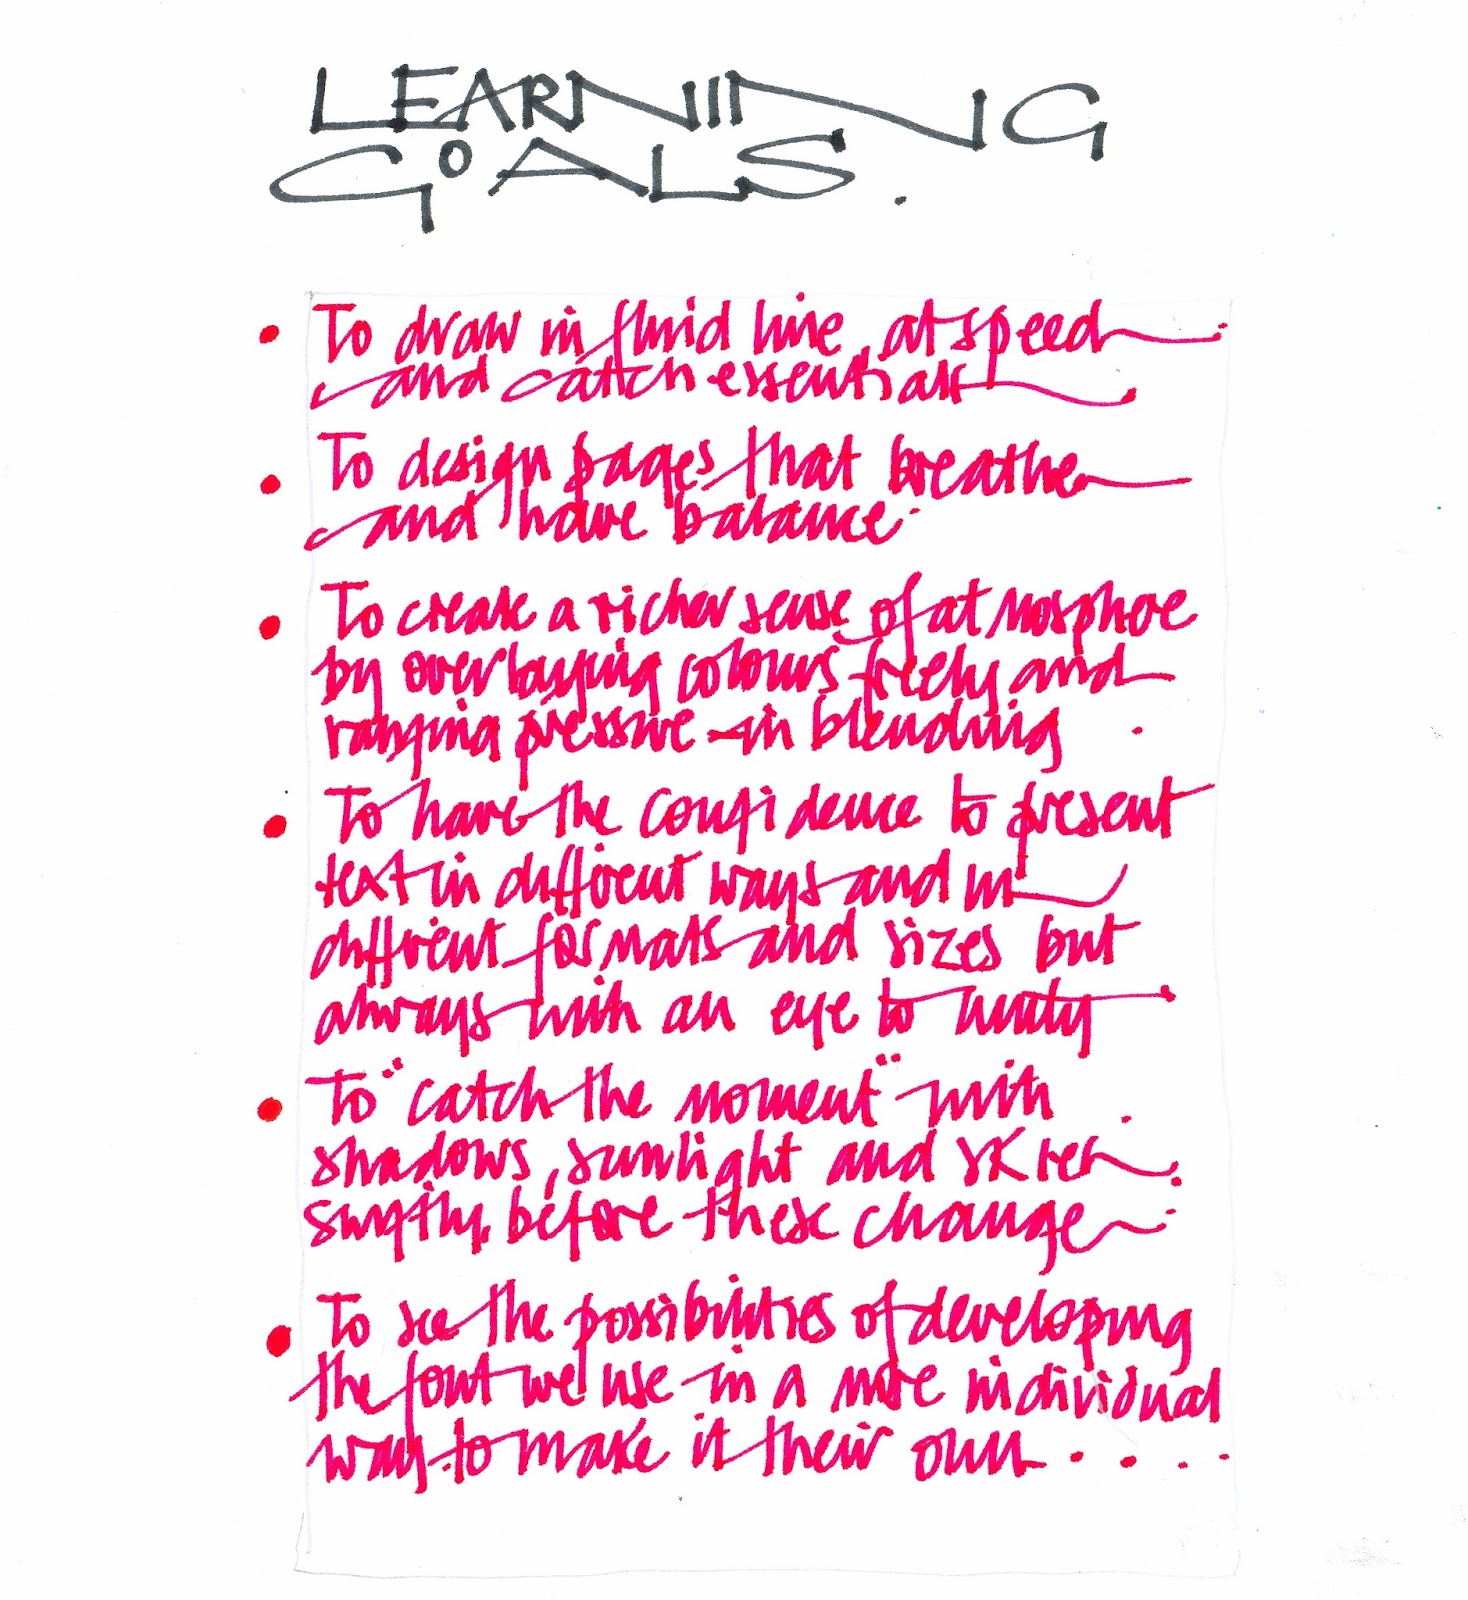 LEARNING
GOALS.
• To draw in fluid line, at speed
and catch essentials
• To design pages that breathe
and have balance.
• To create a richer sense of atmosphere
by overlaying colours freely and
ranging pressure in blending.
• To have the confidence to present
text in different ways and in
different formats and sizes but
always with an eye to unity
• To "catch the moment" with
shadows, sunlight and skies
swiftly, before these change.
• To see the possibilities of developing
the font we use in a more individual
way to make it their own....